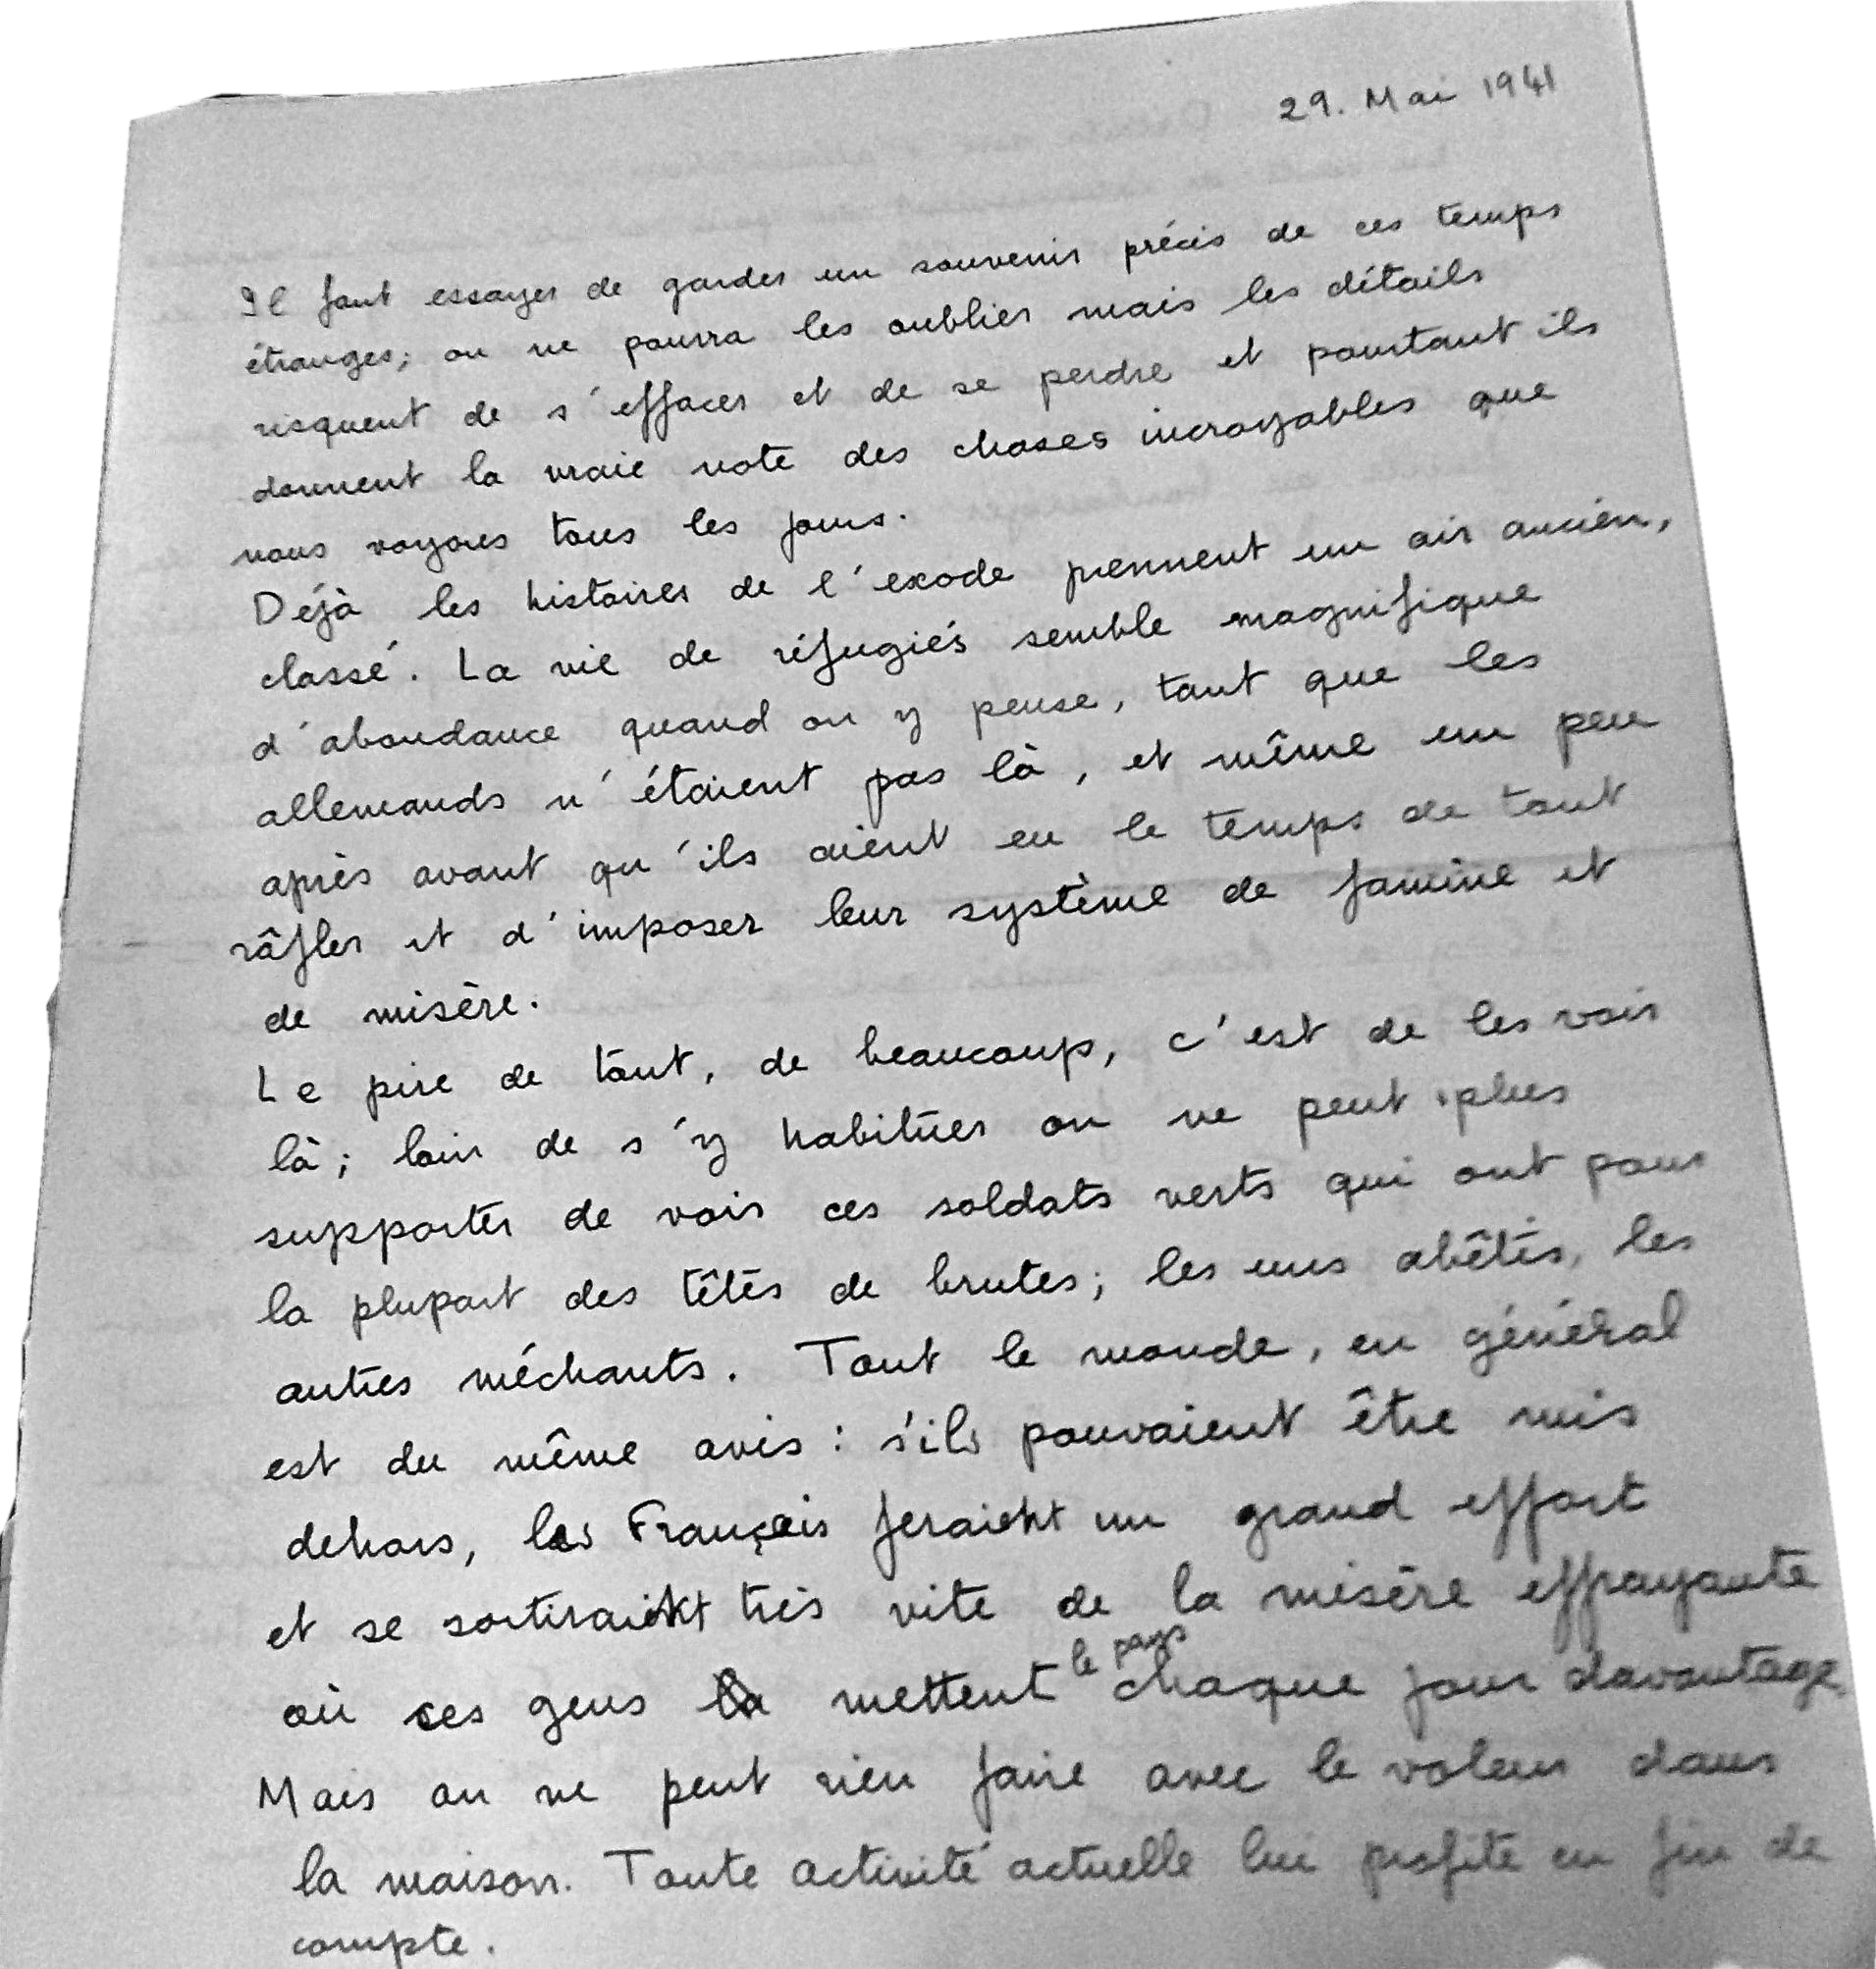 29. Mai 1941
Il faut essayer de garder un souvenir précis de ces temps
étranges; on ne pourra les oublier mais les détails
risquent de s'effacer et de se perdre et pourtant ils
donnent la vraie note des choses incroyables que
nous voyons tous les jours.
Déjà les histoires de l'exode prennent un air ancien,
classé. La vie de réfugiés semble magnifique
d'abondance quand on y pense, tant que les
allemands n'étaient pas là, et même un peu
après avant qu'ils aient eu le temps de tout
râfler et d'imposer leur système de famine et
de misère.
Le pire de tout, de beaucoup, c'est de les voir
là; loin de s'y habituer on ne peut plus
supporter de voir ces soldats verts qui ont pour
la plupart des têtes de brutes; les uns abêtis, les
autres méchants. Tout le monde, en général
est du même avis: s'ils pouvaient être mis
dehors, les Français feraient un grand effort
et se sortiraient très vite de la misère effrayante
où ces gens mettent le pays chaque jour davantage.
Mais on ne peut rien faire avec le voleur dans
la maison. Toute activité actuelle lui profite en fin de
compte.